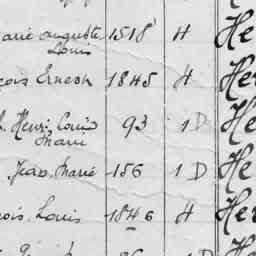 Marie auguste 1518 H He
Louis
çois Ernest 1845 H He
Henri Louis 93 1 D He
Marie
Jean Marie 156 1 D He
çois Louis 1846 H Her